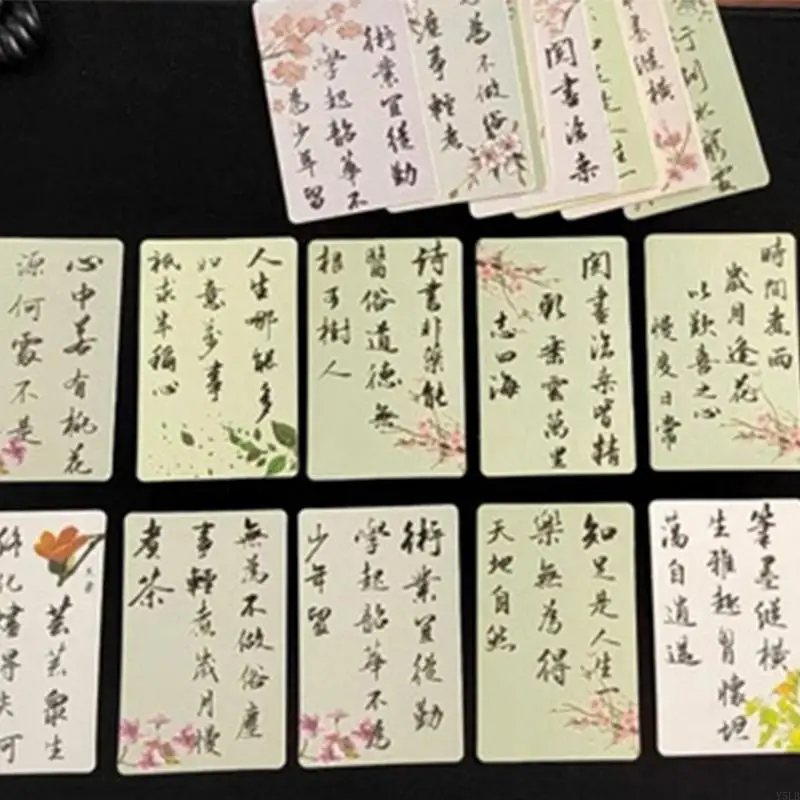 術業宜從勤
學起韶華不
為少年留
為不做俗
塵事輕煮
閱書法柔
足是人生一
墨縱橫
行到水窮
心中若有桃花
源何處不是
人生哪能多
如意萬事
祇求半稱心
詩書非藥能
醫俗道德無
根可樹人
閱書法柔皆精
乘雲萬里
志四海
時間煮雨
歲月逢花
以歡喜之心
慢度日常
芸芸眾生
無為不做俗塵
事輕煮歲月慢
煮茶
術業宜從勤
學起韶華不為
少年留
知足是人生一
樂無為得
天地自然
筆墨縱橫
生雅趣胸懷坦
蕩自逍遥